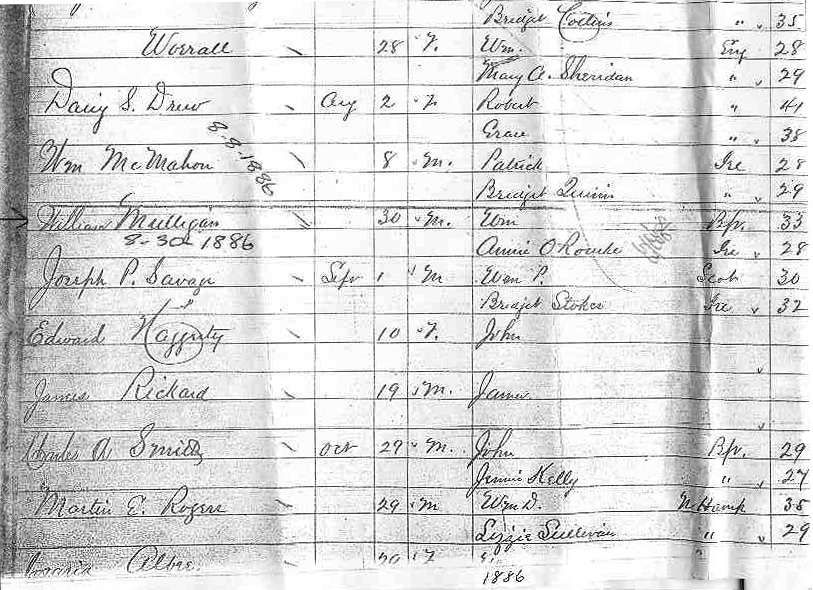 Bridget Collins " 35
Worrall 28 F. Wm. Eng 28
Mary A. Sheridan " 29
Daisy S. Drew Aug 2 F. Robert " 41
Grace " 38
8-8-1886
Wm McMahon 8 M. Patrick Ire 28
Bridget Quinn " 29
William Mulligan 30 M. Wm Bpt. 33
8-30-1886
Annie O'Rourke Ire 28
Joseph P. Savage Sept 1 M Wm P. Scot 30
Bridget Stokes Ire 32
Edward Haggerty 10 F. John
James Rickard 19 M. James
Charles A Smith Oct 29 M. John Bpt. 29
Jennie Kelly " 27
Martin E. Rogers 29 M Wm D. N Hamp 35
Lizzie Sullivan " 29
1886